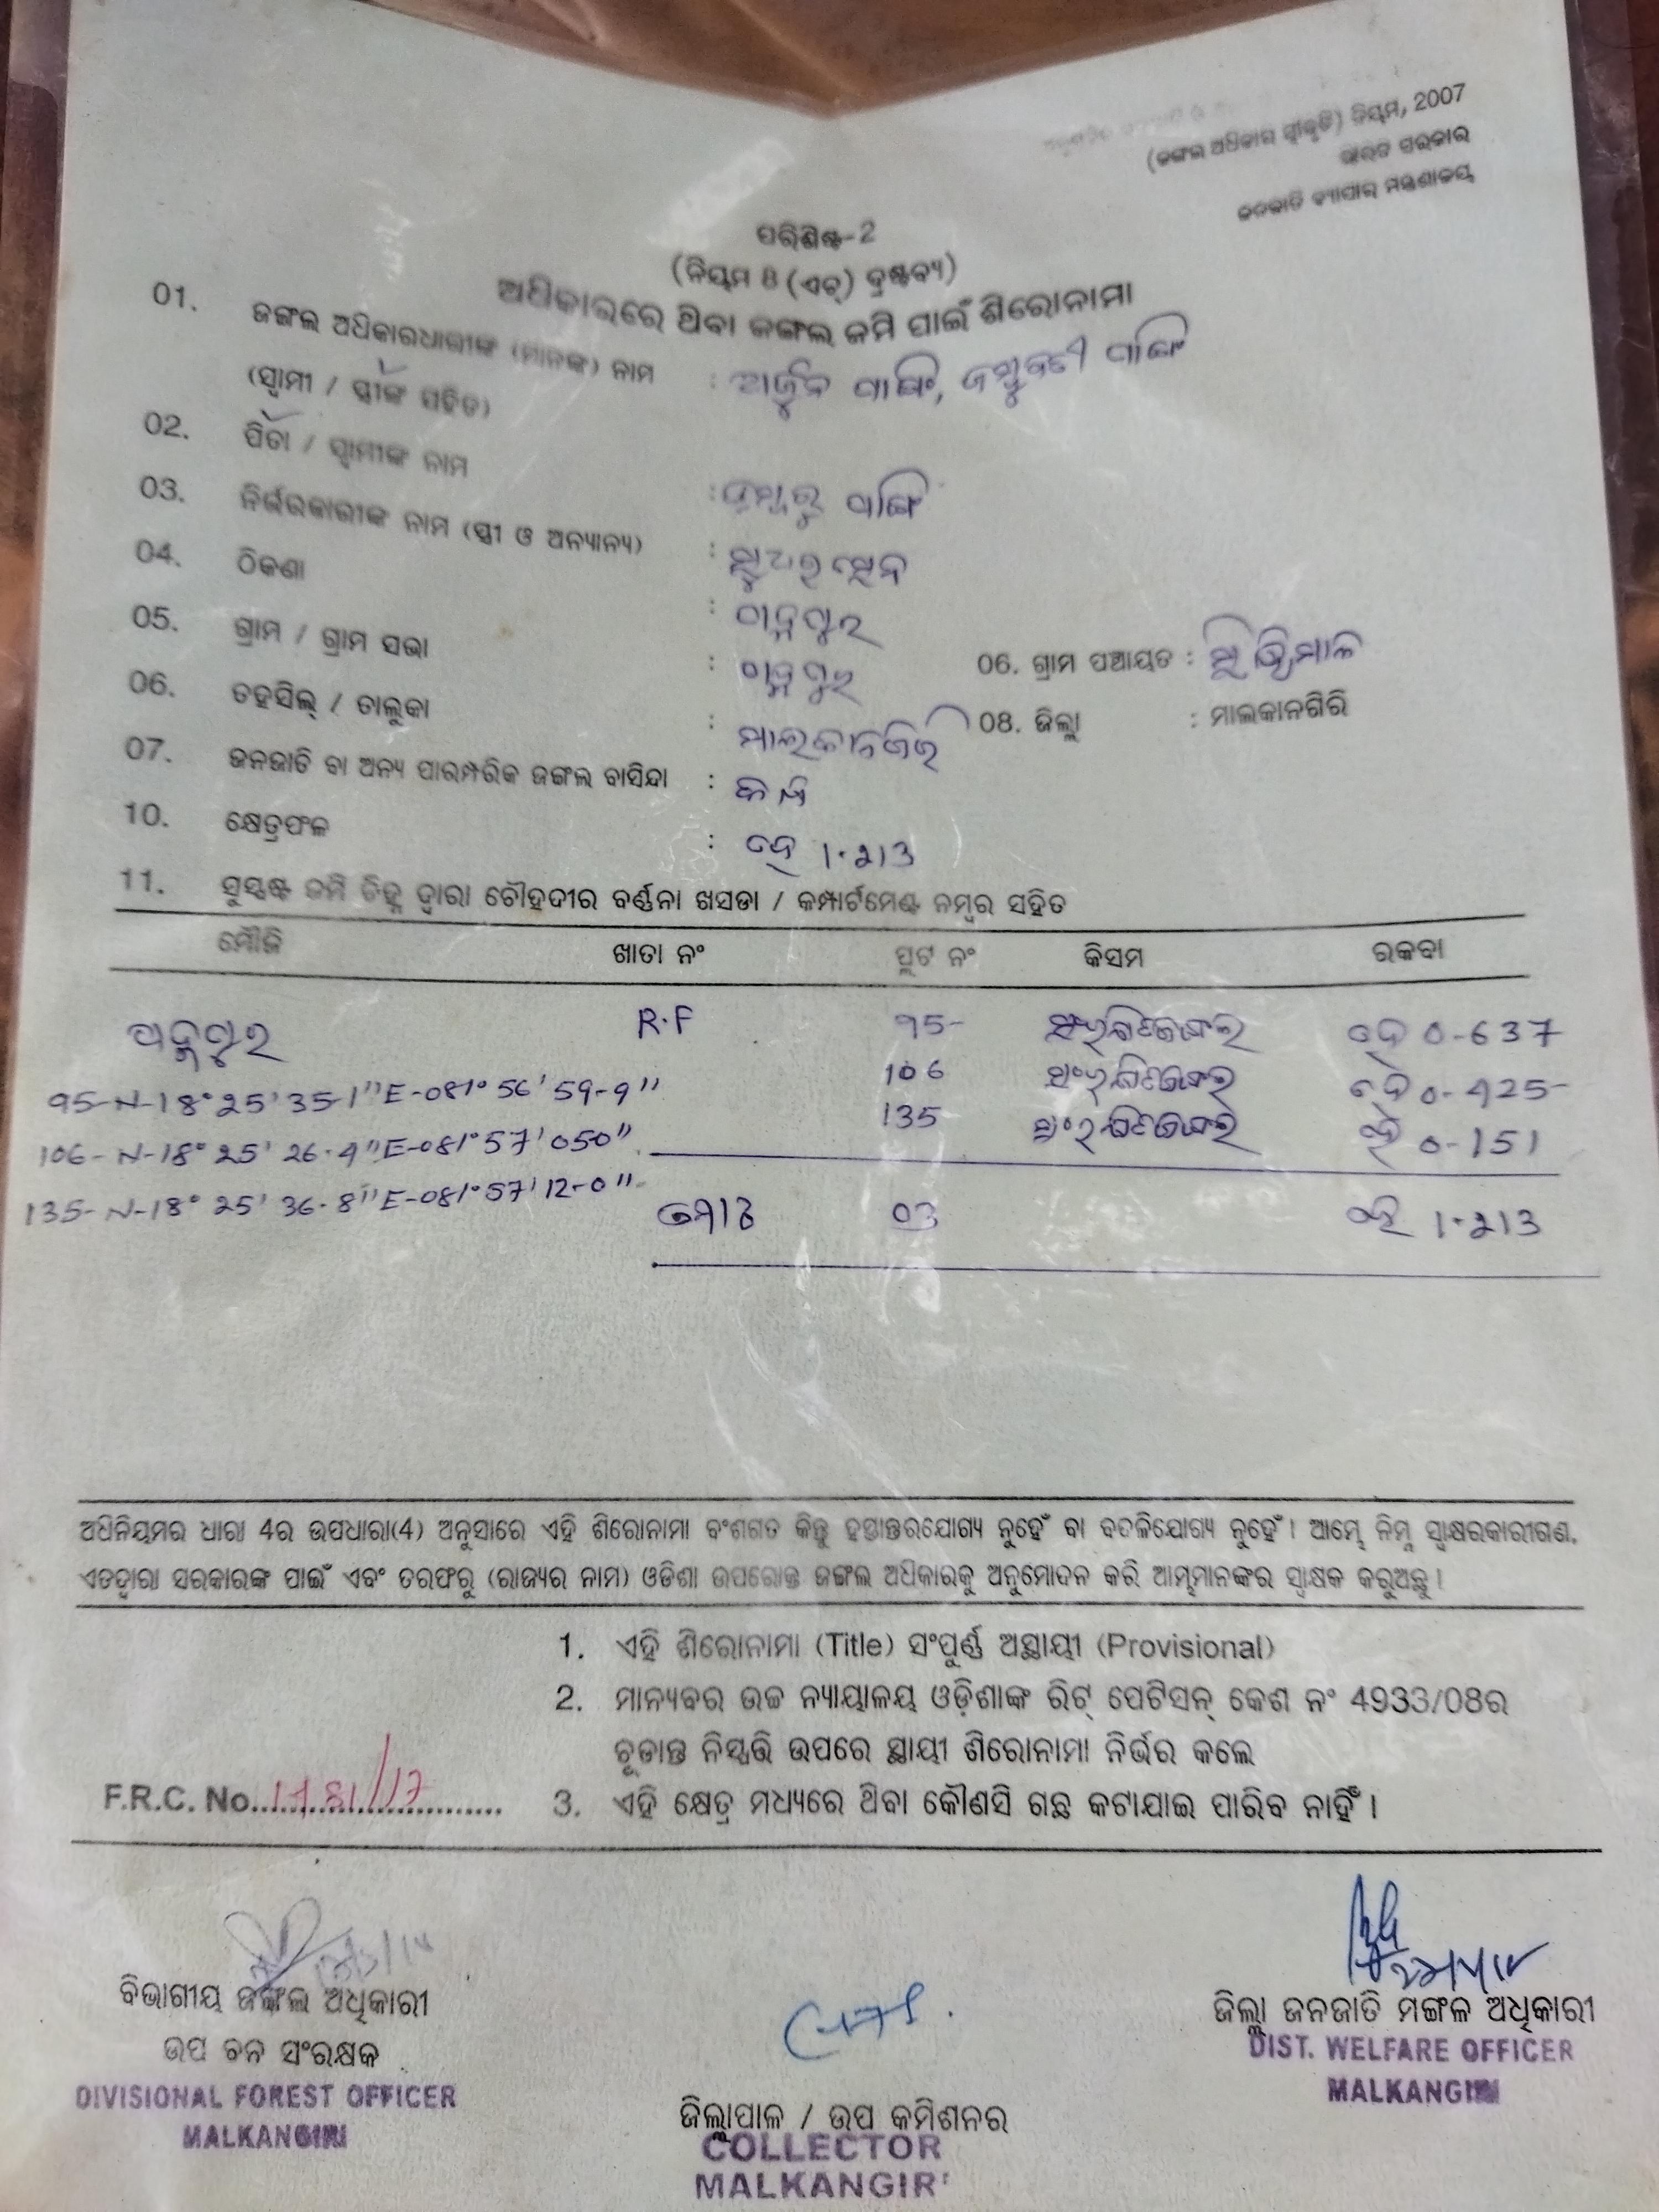 (ଜଙ୍ଗଲ ଅଧିକାର ସ୍ୱୀକୃତି) ନିୟମ, 2007
ଭାରତ ସରକାର
ଜନଜାତି ବ୍ୟାପାର ମନ୍ତ୍ରଣାଳୟ
ପରିଶିଷ୍ଟ-2
(ନିୟମ 8 (ଏଚ୍) ଦ୍ରଷ୍ଟବ୍ୟ)
ଅଧିକାରରେ ଥିବା ଜଙ୍ଗଲ ଜମି ପାଇଁ ଶିରୋନାମା
01. ଜଙ୍ଗଲ ଅଧିକାରଧାରୀଙ୍କ (ମାନଙ୍କ) ନାମ : ଅର୍ଜୁନ ପାଙ୍ଗି, ଜମ୍ବୁବତୀ ପାଙ୍ଗି
(ସ୍ୱାମୀ / ସ୍ତ୍ରୀଙ୍କ ସହିତ)
02. ପିତା / ସ୍ୱାମୀଙ୍କ ନାମ : ଡମ୍ବରୁ ପାଙ୍ଗି
03. ନିର୍ଭରକାରୀଙ୍କ ନାମ (ସ୍ତ୍ରୀ ଓ ଅନ୍ୟାନ୍ୟ) :
04. ଠିକଣା : ପାଦ୍ମପୁର
05. ଗ୍ରାମ / ଗ୍ରାମ ସଭା : ପାଦ୍ମପୁର 06. ଗ୍ରାମ ପଞ୍ଚାୟତ :
06. ତହସିଲ୍ / ତାଲୁକା : ମାଲକାନଗିରି 08. ଜିଲ୍ଲା : ମାଲକାନଗିରି
07. ଜନଜାତି ବା ଅନ୍ୟ ପାରମ୍ପରିକ ଜଙ୍ଗଲ ବାସିନ୍ଦା :
10. କ୍ଷେତ୍ରଫଳ : ହେ 1.213
11. ସୁସ୍ପଷ୍ଟ ଜମି ଚିହ୍ନ ଦ୍ୱାରା ଚୌହଦୀର ବର୍ଣ୍ଣନା ଖସଡା / କମ୍ପାର୍ଟମେଣ୍ଟ ନମ୍ବର ସହିତ
ମୌଜି ଖାତା ନଂ ପ୍ଲଟ ନଂ କିସମ ରକବା
ପଦ୍ମପୁର R.F 95 ସଂରକ୍ଷିତଜଙ୍ଗଲ ହେ 0-637
95-N-18°25'35-1"E-081°56'59-9" 106 ସଂରକ୍ଷିତଜଙ୍ଗଲ ହେ 0-425
106-N-18°25'26.4"E-081°57'050" 135 ସଂରକ୍ଷିତଜଙ୍ଗଲ ହେ 0-151
135-N-18°25'36.8"E-081°57'12-0" ମୋଟ 03 ହେ 1.213
ଅଧିନିୟମର ଧାରା 4ର ଉପଧାରା(4) ଅନୁସାରେ ଏହି ଶିରୋନାମା ବଂଶଗତ କିନ୍ତୁ ହସ୍ତାନ୍ତରଯୋଗ୍ୟ ନୁହେଁ ବା ବଦଳିଯୋଗ୍ୟ ନୁହେଁ । ଆମ୍ଭେ ନିମ୍ନ ସ୍ୱାକ୍ଷରକାରୀଗଣ,
ଏତଦ୍ୱାରା ସରକାରଙ୍କ ପାଇଁ ଏବଂ ତରଫରୁ (ରାଜ୍ୟର ନାମ) ଓଡିଶା ଉପରୋକ୍ତ ଜଙ୍ଗଲ ଅଧିକାରକୁ ଅନୁମୋଦନ କରି ଆମ୍ଭମାନଙ୍କର ସ୍ୱାକ୍ଷକ କରୁଅଛୁ ।
1. ଏହି ଶିରୋନାମା (Title) ସଂପୁର୍ଣ୍ଣ ଅସ୍ଥାୟୀ (Provisional)
2. ମାନ୍ୟବର ଉଚ୍ଚ ନ୍ୟାୟାଳୟ ଓଡ଼ିଶାଙ୍କ ରିଟ୍ ପେଟିସନ୍ କେଶ ନଂ 4933/08ର
ଚୂଡାନ୍ତ ନିସ୍ପତ୍ତି ଉପରେ ସ୍ଥାୟୀ ଶିରୋନାମା ନିର୍ଭର କଲେ
F.R.C. No. 3. ଏହି କ୍ଷେତ୍ର ମଧ୍ୟରେ ଥିବା କୌଣସି ଗଛ କଟାଯାଇ ପାରିବ ନାହିଁ ।
ବିଭାଗୀୟ ଜଙ୍ଗଲ ଅଧିକାରୀ
ଉପ ବନ ସଂରକ୍ଷକ
DIVISIONAL FOREST OFFICER
MALKANGIRI
ଜିଲ୍ଲାପାଳ / ଉପ କମିଶନର
COLLECTOR
MALKANGIRI
ଜିଲ୍ଲା ଜନଜାତି ମଙ୍ଗଳ ଅଧିକାରୀ
DIST. WELFARE OFFICER
MALKANGIRI